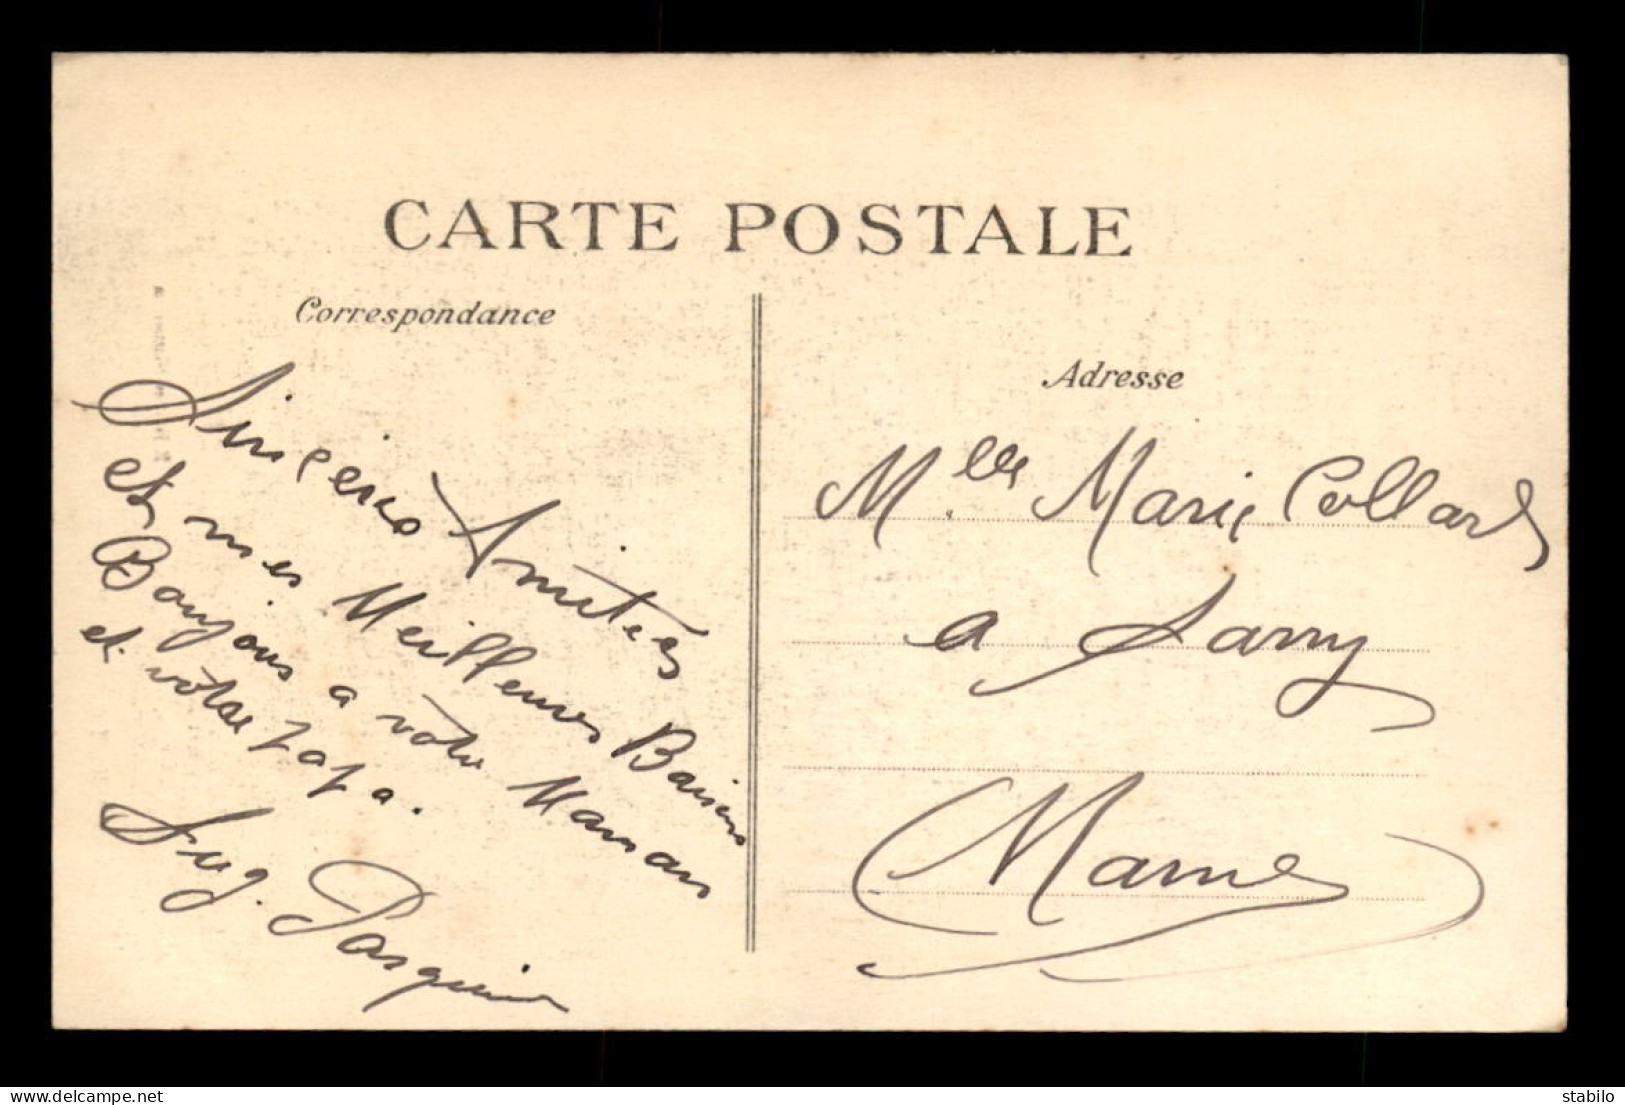 CARTE POSTALE
Correspondance
Sincères Amitiés
et mes Meilleures Baisers
Bonjours a votre Maman
et votre papa.
Aug. Pasquier
Adresse
Melle Marie Collard
a Sarry
Marne
delcampe.net
stabilo